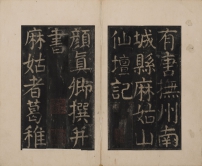 有唐撫州南
城縣麻姑山
仙壇記
顔真卿撰并
書
麻姑者葛稚